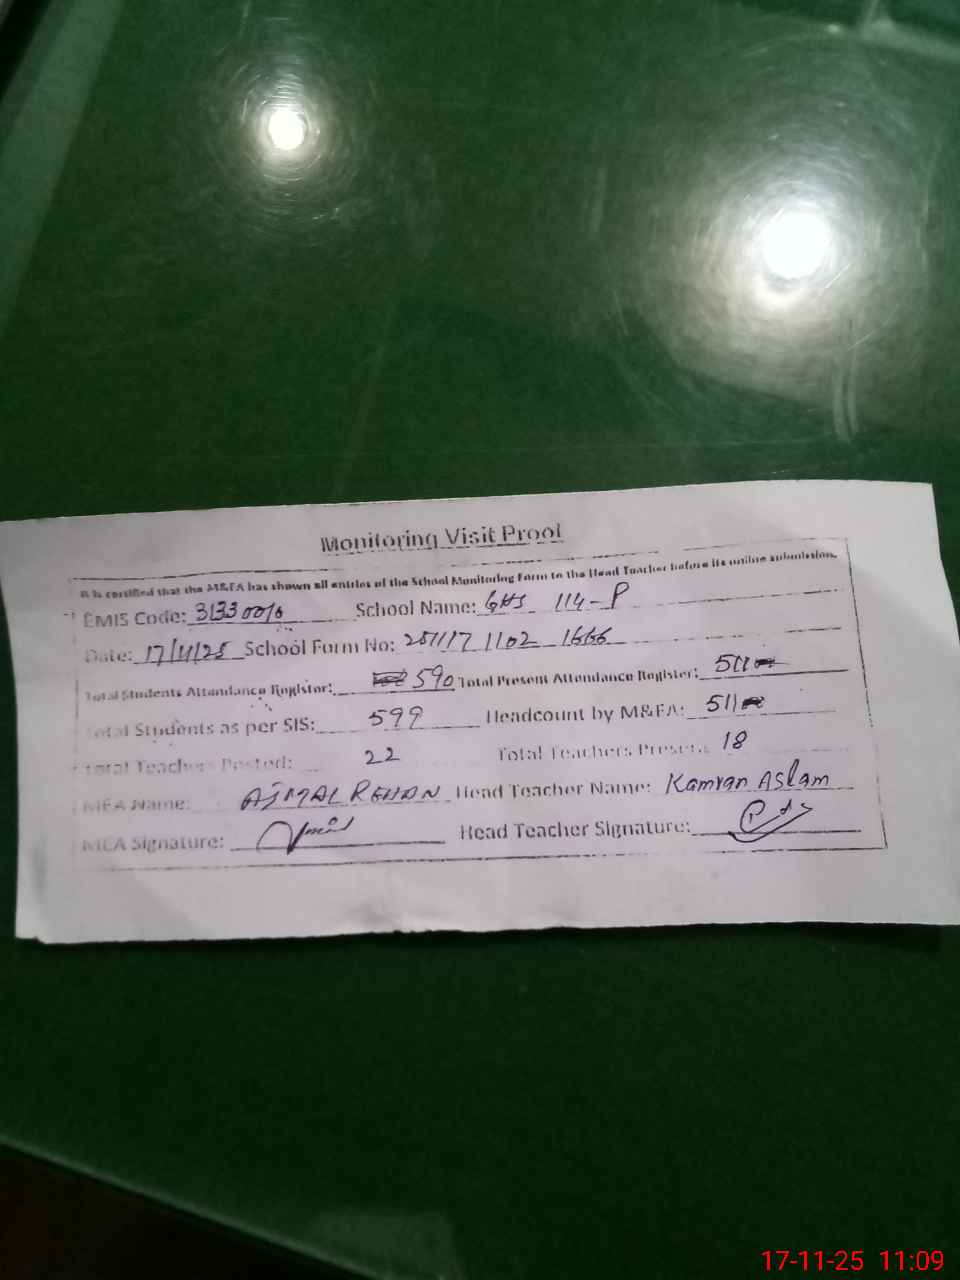 Monitoring Visit Proof
It is certified that the M&EA has shown all entries of the School Monitoring Form to the Head Teacher before its online submission.
EMIS Code: 31330010 School Name: GHS 114-P
Date: 17/11/25 School Form No: 251117 1102 1666
Total Students Attendance Register: 590 Total Present Attendance Register: 511
Total Students as per SIS: 599 Headcount by M&EA: 511
Total Teachers Posted: 22 Total Teachers Present: 18
MEA Name: AJMAL REHAN Head Teacher Name: Kamran Aslam
MEA Signature: Head Teacher Signature:
17-11-25 11:09